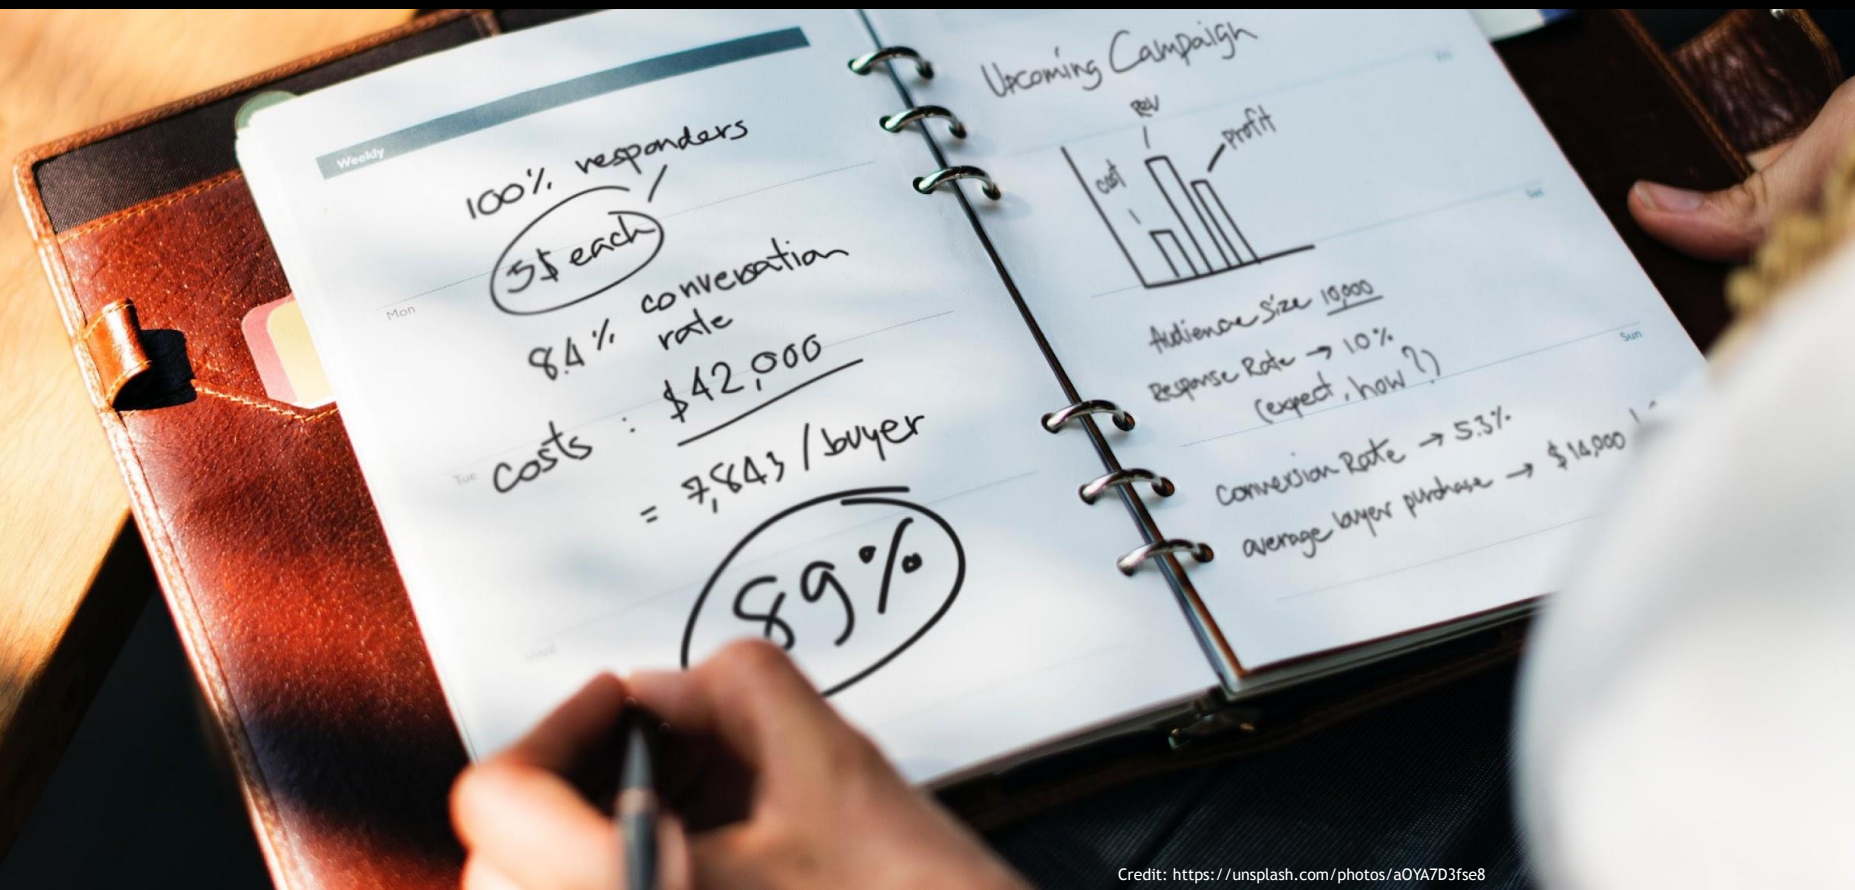 Weekly
100% responders
5$ each
Mon
8.4% conversation
rate
Tue
costs : $42,000
= 7,843 / buyer
89%
Upcoming Campaign
Rev
Profit
cost
Sat
Audience Size 10,000
Response Rate → 1.0%
(expect, how?)
Sun
Conversion Rate → 5.3%
average buyer purchase → $14,000
Credit: https://unsplash.com/photos/aOYA7D3fse8